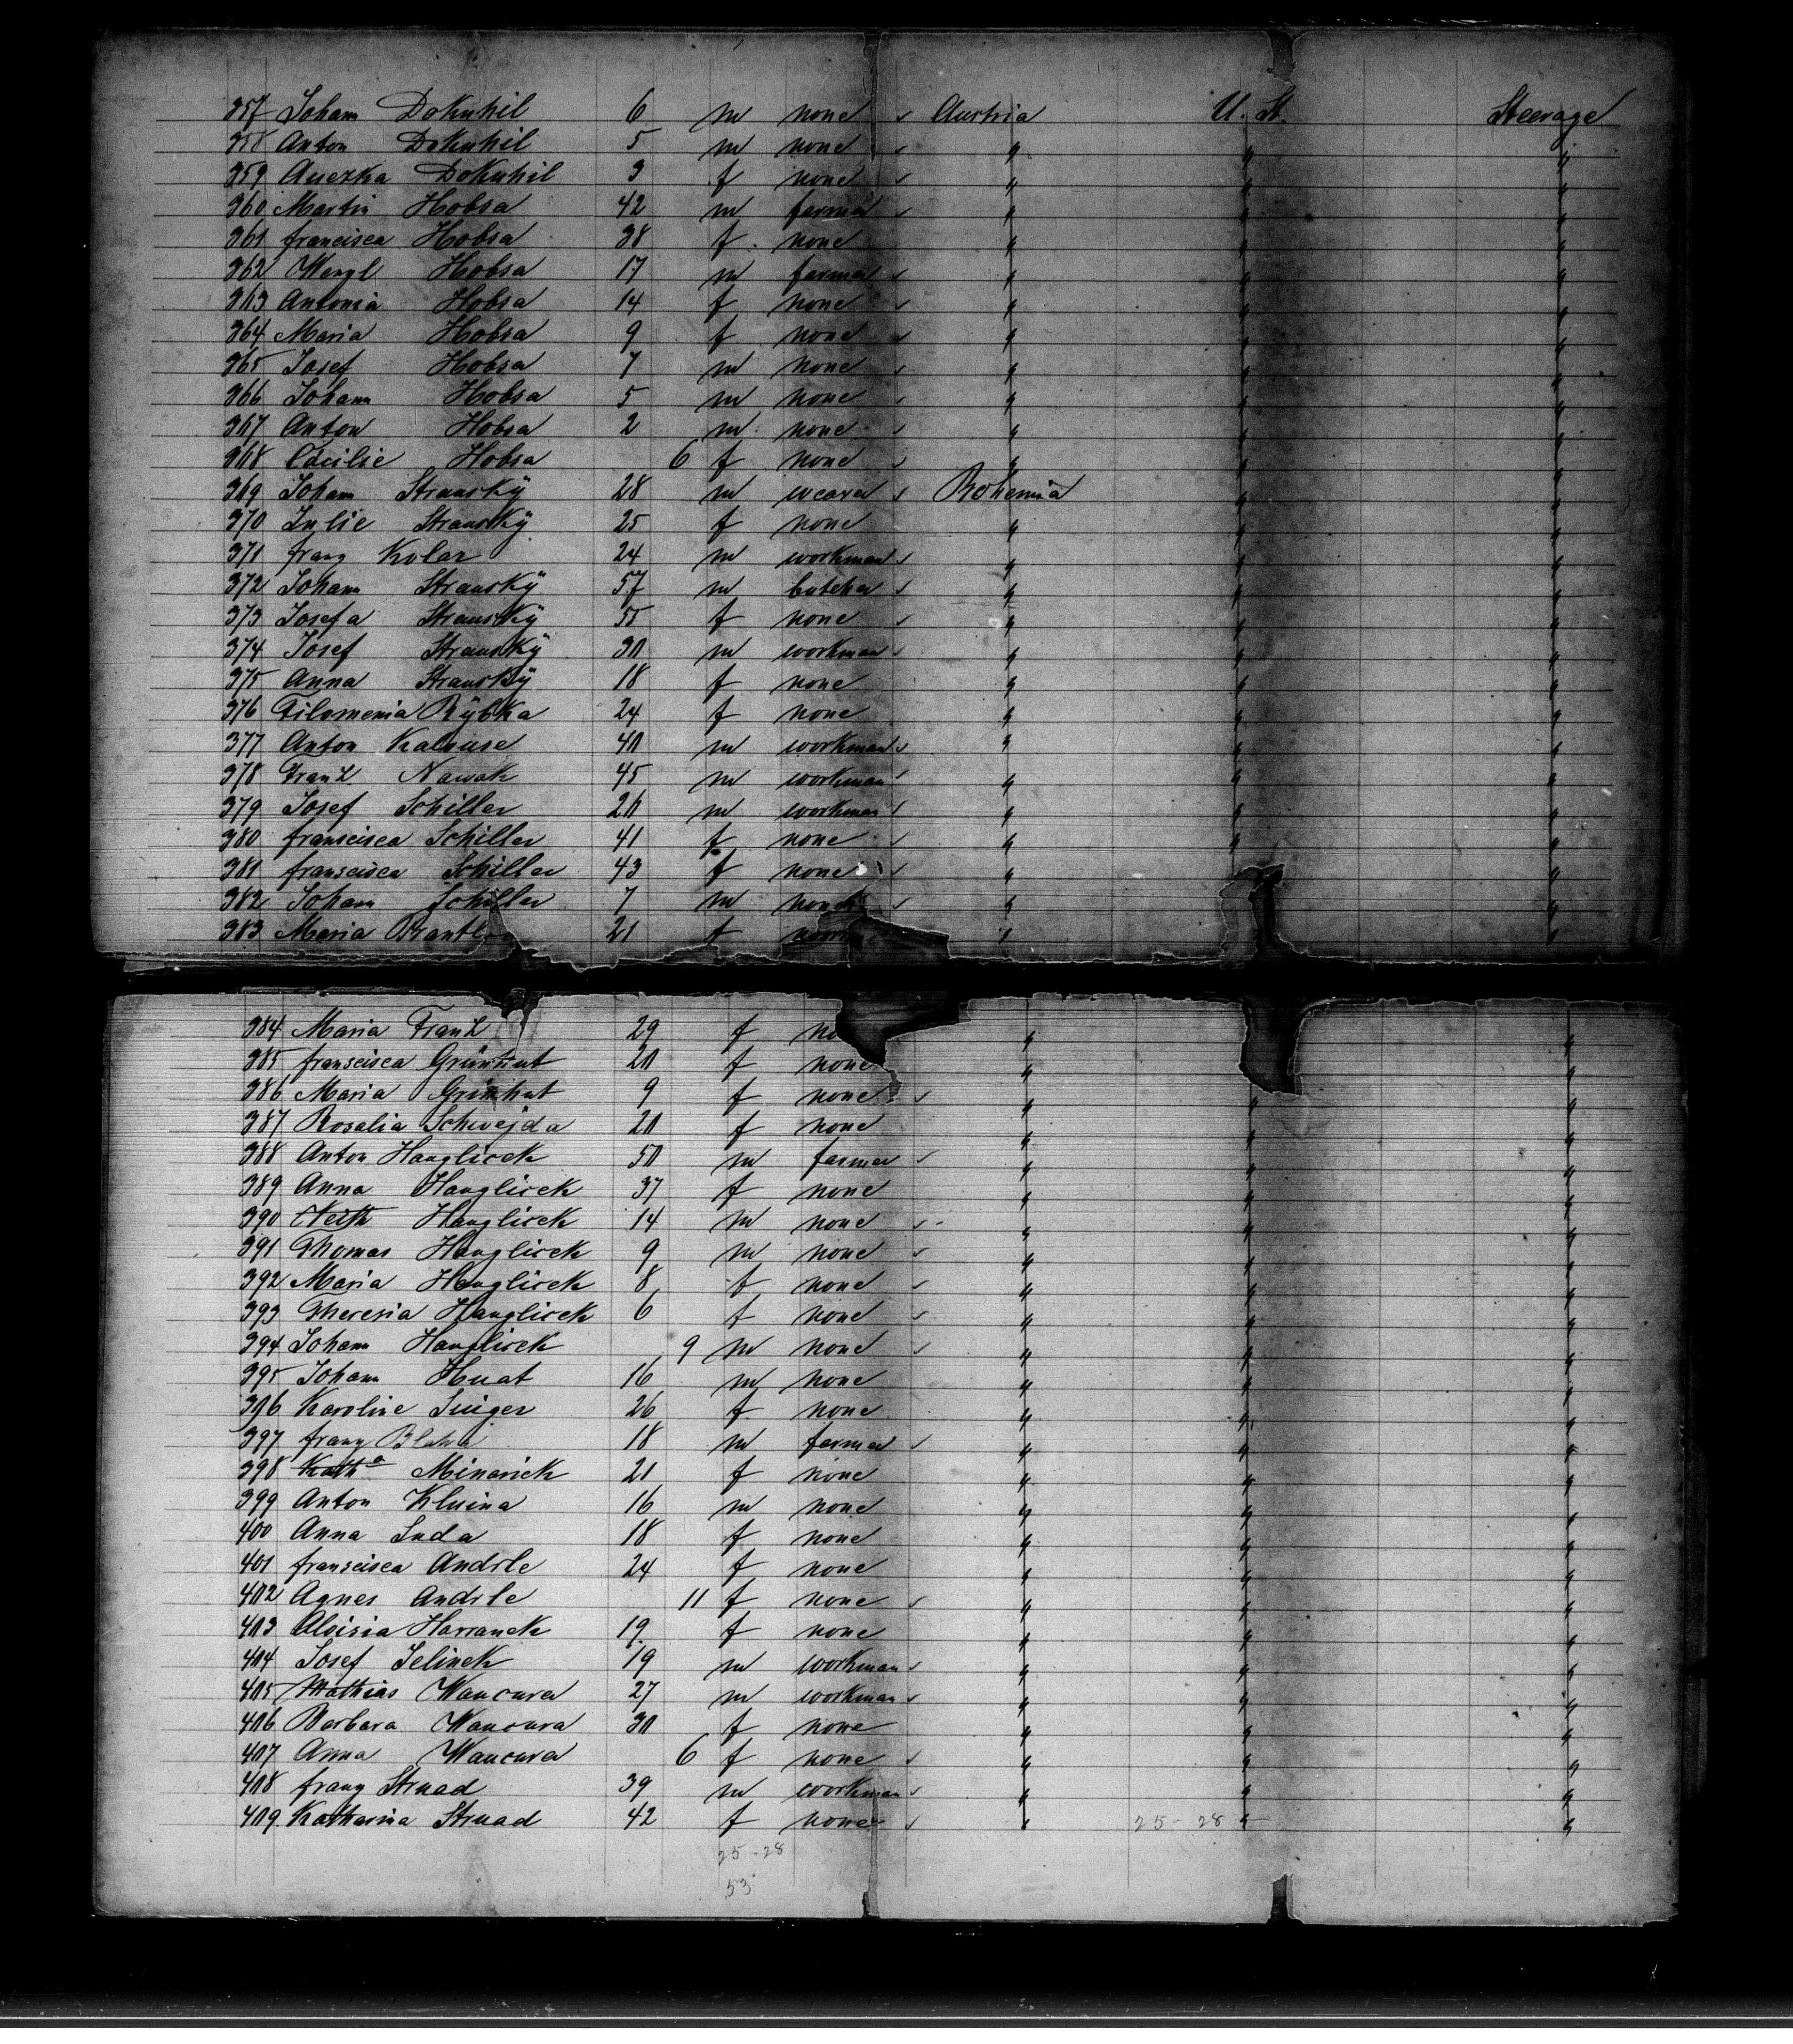 357 Johann Dokuhil 6 m none ✓ Austria U. St. Steerage
358 Anton Dokuhil 5 m none ✓ " " "
359 Anezka Dokuhil 3 f none ✓ " " "
360 Martin Hobsa 42 m farmer ✓ " " "
361 francisca Hobsa 38 f none " " "
362 Wenzl Hobsa 17 m farmer ✓ " " "
363 Antonia Hobsa 14 f none ✓ " " "
364 Maria Hobsa 9 f none ✓ " " "
365 Josef Hobsa 7 m none ✓ " " "
366 Johann Hobsa 5 m none ✓ " " "
367 Anton Hobsa 2 m none ✓ " " "
368 Cäcilie Hobsa 6 f none ✓ " " "
369 Johann Stransky 28 m weaver ✓ Bohemia " "
370 Julie Stransky 25 f none " " "
371 franz Kolar 24 m workman ✓ " " "
372 Johann Stransky 57 m butcher ✓ " " "
373 Josefa Stransky 55 f none ✓ " " "
374 Josef Stransky 30 m workman ✓ " " "
375 Anna Stransky 18 f none " " "
376 Filomenia Rybka 24 f none " " "
377 Anton Kalouse 40 m workman ✓ " " "
378 Franz Nawak 45 m workman ✓ " " "
379 Josef Schiller 20 m workman ✓ " " "
380 franscisca Schiller 41 f none ✓ " " "
381 franscisca Schiller 43 f none ✓ " " "
382 Johann Schiller 7 m none ✓ " "
383 Maria 21 f none " "
384 Maria Franz 29 f " "
385 franscisca Grünhut 20 f none " "
386 Maria Grünhut 9 f none ✓ " " "
387 Rosalia Schwejda 20 f none " " "
388 Anton Hauglicek 50 m farmer ✓ " " "
389 Anna Hauglicek 37 f none " " "
390 Veith Hauglicek 14 m none ✓ " " "
391 Thomas Hauglicek 9 m none ✓ " " "
392 Maria Hauglicek 8 f none ✓ " " "
393 Theresia Hauglicek 6 f none ✓ " " "
394 Johann Hauglicek 9 m none ✓ " " "
395 Johann Huat 16 m none " " "
396 Karoline Singer 26 f none " " "
397 franz Blaha 18 m farmer ✓ " " "
398 Katha Minarick 21 f none " " "
399 Anton Klnina 16 m none " " "
400 Anna Suda 18 f none " " "
401 franscisca Andrle 24 f none " " "
402 Agnes Andrle 11 f none ✓ " " "
403 Aloisia Harranek 19 f none " " "
404 Josef Jelinek 19 m workman ✓ " " "
405 Mathias Wancura 27 m workman ✓ " " "
406 Barbara Wancura 30 f none " " "
407 Anna Wancura 6 f none ✓ " " "
408 franz Strnad 39 m workman ✓ " " "
409 Katharina Strnad 42 f none ✓ " 25-28 " "
25-28
53